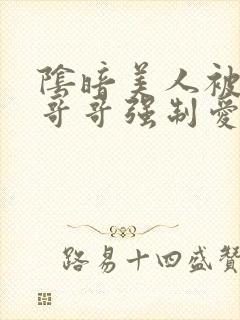 陰暗美人被
哥哥强制愛
路易十四盛贊